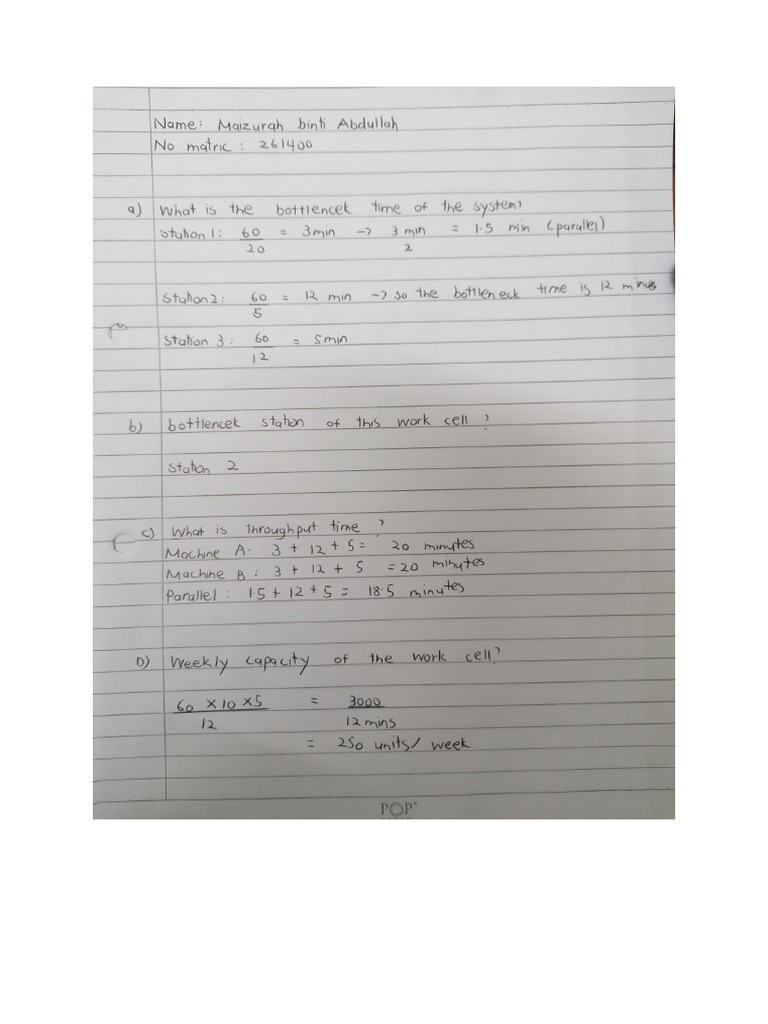 Name: Maizurah binti Abdullah
No matric : 261400
a) What is the bottlencek time of the system?
Station 1: 60/20 = 3min -> 3 min/2 = 1.5 min (parallel)
Station2: 60/5 = 12 min -> so the bottleneck time is 12 minus
Station 3: 60/12 = 5min
b) bottlencek station of this work cell?
Station 2
c) What is throughput time?
Machine A: 3 + 12 + 5 = 20 minutes
Machine B : 3 + 12 + 5 = 20 minutes
Parallel : 1.5 + 12 + 5 = 18.5 minutes
D) Weekly capacity of the work cell?
60 x 10 x 5/12 = 3000/12 mins
= 250 units/ week
POP